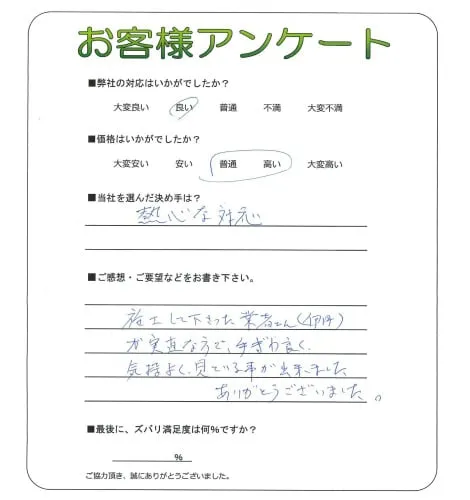 お客様アンケート
■弊社の対応はいかがでしたか？
大変良い 良い 普通 不満 大変不満
■価格はいかがでしたか？
大変安い 安い 普通 高い 大変高い
■当社を選んだ決め手は？
熱心な対応
■ご感想・ご要望などをお書き下さい。
施工して下さった業者さん
が実直な方で、手ぎわ良く、
気持よく見ている事が出来ました
ありがとうございました。
■最後に、ズバリ満足度は何％ですか？
％
ご協力頂き、誠にありがとうございました。